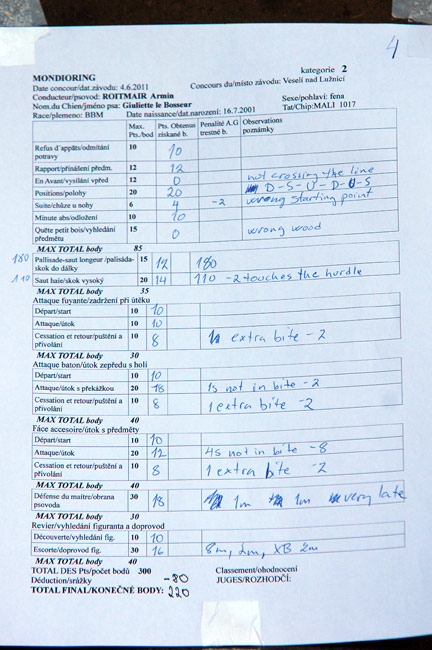 4
MONDIORING
kategorie 2
Date concour/dat.závodu: 4.6.2011
Concours du/místo závodu: Veselí nad Lužnicí
Conducteur/psovod: ROITMAIR Armin
Nom.du Chien/jméno psa: Giuliette le Bosseur
Sexe/pohlaví: fena
Race/plemeno: BBM
Date naissance/dat.narození: 16.7.2001
Tat/Chip:MALI 1017
Max. Pts./bod
Pts. Obtenus získané b.
Penalité A.G trestné b.
Observations poznámky
Refus d'appâts/odmítání potravy 10 10
Rapport/přinášení předm. 12 12
En Avant/vysílání vpřed 12 0 not crossing the line
Positions/polohy 20 20 D-S-U-D-U-S
Suite/chůze u nohy 6 4 -2 wrong starting point
Minute abs/odložení 10 10
Quête petit bois/vyhledání předmětu 15 0 wrong wood
MAX TOTAL body 85
180 Pallisade-saut longeur /palisáda-skok do dálky 15 12 180
110 Saut haie/skok vysoký 20 14 110 -2 touches the hurdle
MAX TOTAL body 35
Attaque fuyante/zadržení při útěku
Départ/start 10 10
Attaque/útok 10 10
Cessation et retour/puštění a přivolání 10 8 1 extra bite -2
MAX TOTAL body 30
Attaque baton/útok zepředu s holí
Départ/start 10 10
Attaque/útok s překážkou 20 18 1s not in bite -2
Cessation et retour/puštění a přivolání 10 8 1 extra bite -2
MAX TOTAL body 40
Fáce accesoire/útok s předměty
Départ/start 10 10
Attaque/útok 20 12 4s not in bite -8
Cessation et retour/puštění a přivolání 10 8 1 extra bite -2
MAX TOTAL body 40
Défense du maitre/obrana psovoda 30 18 1m 1m very late
MAX TOTAL body 30
Revier/vyhledání figuranta a doprovod
Découverte/vyhledání fig. 10 10
Escorte/doprovod fig. 30 16 8m, 2m, XB 2m
MAX TOTAL body 40
TOTAL DES Pts/počet bodů 300
Classement/ohodnocení
Déduction/srážky -80
JUGES/ROZHODČÍ:
TOTAL FINAL/KONEČNÉ BODY: 220